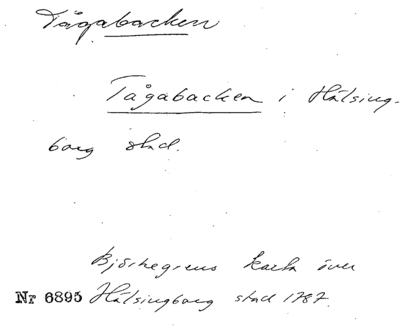 Tågabacken
Tågabacken i Hälsing-
borg stad.
Björkegrens karta över
Nr 6895 Hälsingborg stad 1787.